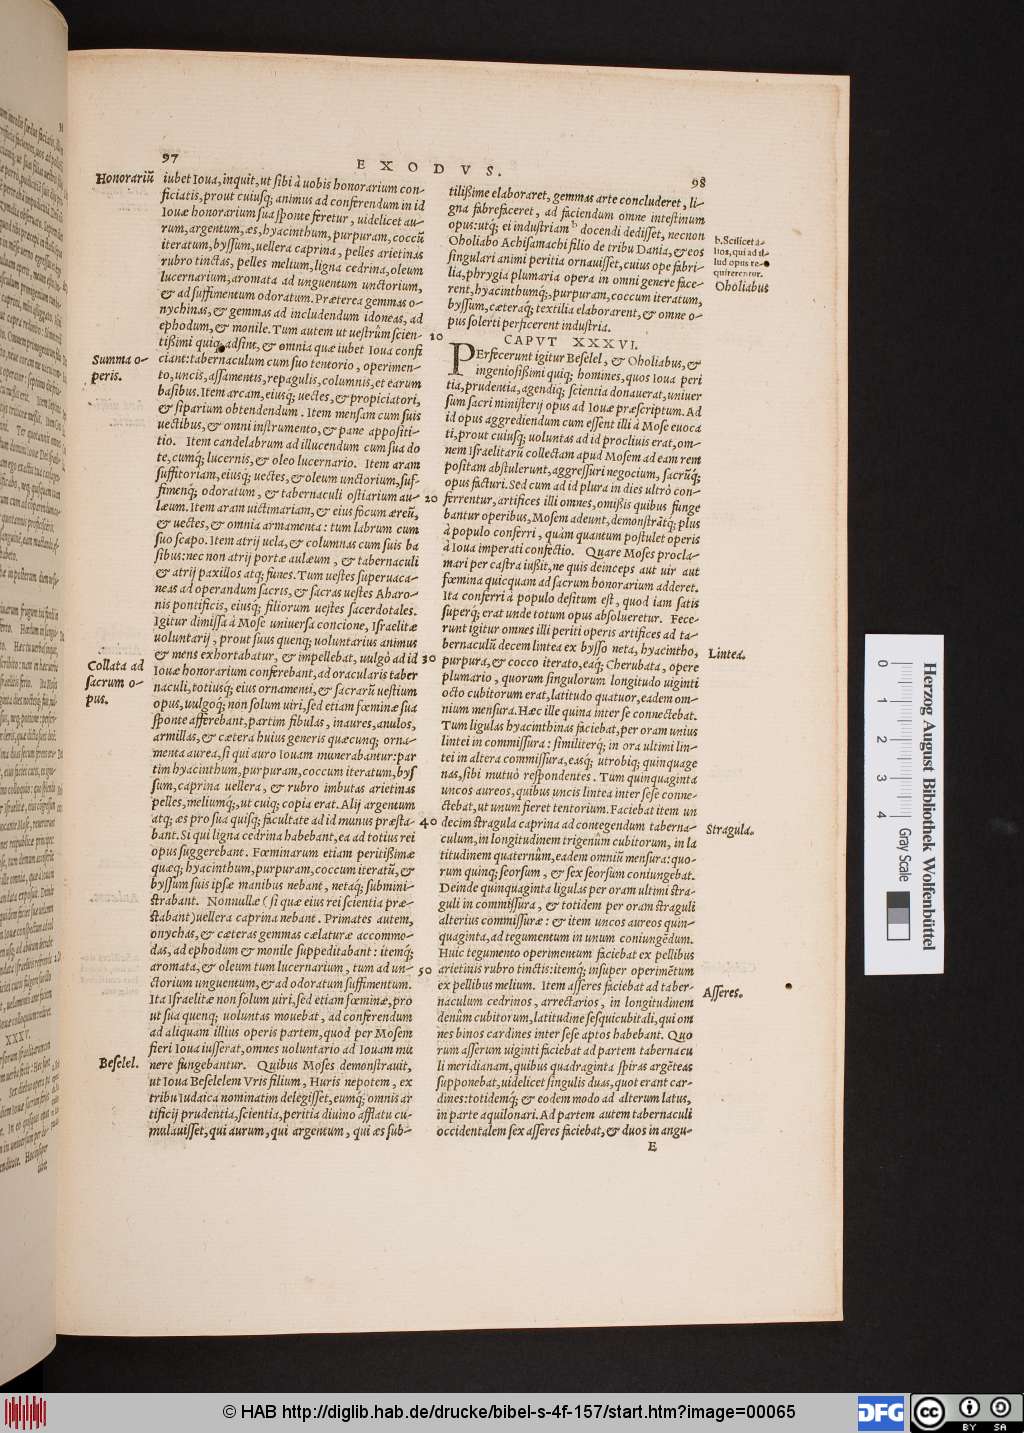 97
EXODVS.
98
Honorariũ
iubet Ioua, inquit, ut sibi à uobis honorarium con-
ficiatis, prout cuiusq; animus ad conferendum in id
Iouæ honorarium sua sponte feretur, uidelicet au-
rum, argentum, æs, hyacinthum, purpuram, coccũ
iteratum, byssum, uellera caprina, pelles arietinas
rubro tinctas, pelles melium, ligna cedrina, oleum
lucernarium, aromata ad unguentum unctorium,
& ad suffimentum odoratum. Præterea gemmas o-
nychinas, & gemmas ad includendum idoneas, ad
ephodum, & monile. Tum autem ut uestrûm scien-
tißimi quiq; adsint, & omnia quæ iubet Ioua confi
Summa o-
peris.
ciant: tabernaculum cum suo tentorio, operimen-
to, uncis, assamentis, repagulis, columnis, et earum
basibus. Item arcam, eiusq; uectes, & propiciatori,
& siparium obtendendum. Item mensam cum suis
uectibus, & omni instrumento, & pane appositi-
tio. Item candelabrum ad illucendum cum sua do
te, cumq; lucernis, & oleo lucernario. Item aram
suffitoriam, eiusq; uectes, & oleum unctorium, suf-
fimenq; odoratum, & tabernaculi ostiarium au-
læum. Item aram uictimariam, & eius focum æreũ,
& uectes, & omnia armamenta: tum labrum cum
suo scapo. Item atrij uela, & columnas cum suis ba
sibus: nec non atrij portæ aulæum, & tabernaculi
& atrij paxillos atq; funes. Tum uestes superuaca-
neas ad operandum sacris, & sacras uestes Aharo-
nis pontificis, eiusq; filiorum uestes sacerdotales.
Igitur dimissa à Mose uniuersa concione, Israelitæ
uoluntarij, prout suus quenq; uoluntarius animus
& mens exhortabatur, & impellebat, uulgò ad id
Collata ad
sacrum o-
pus.
Iouæ honorarium conferebant, ad oracularis taber
naculi, totiusq; eius ornamenti, & sacrarũ uestium
opus, uulgoq; non solum uiri, sed etiam fœminæ sua
sponte afferebant, partim fibulas, inaures, anulos,
armillas, & cætera huius generis quæcunq; orna-
menta aurea, si qui auro Iouam munerabantur: par
tim hyacinthum, purpuram, coccum iteratum, bys
sum, caprina uellera, & rubro imbutas arietinas
pelles, meliumq;, ut cuiq; copia erat. Alij argentum
atq; æs pro sua quisq; facultate ad id munus præsta-
bant. Si qui ligna cedrina habebant, ea ad totius rei
opus suggerebant. Fœminarum etiam peritißimæ
quæq; hyacinthum, purpuram, coccum iteratũ, &
byssum suis ipsæ manibus nebant, netaq; submini-
strabant. Nonnullæ (si quæ eius rei scientia præ-
stabant) uellera caprina nebant. Primates autem,
onychas, & cæteras gemmas cælaturæ accommo-
das, ad ephodum & monile suppeditabant: itemq;
aromata, & oleum tum lucernarium, tum ad un-
ctorium unguentum, & ad odoratum suffimentum.
Ita Israelitæ non solum uiri, sed etiam fœminæ, pro
ut sua quenq; uoluntas mouebat, ad conferendum
ad aliquam illius operis partem, quod per Mosem
fieri Ioua iusserat, omnes uoluntario ad Iouam mu
Beselel.
nere fungebantur. Quibus Moses demonstrauit,
ut Ioua Beselelem Vris filium, Huris nepotem, ex
tribu Iudaica nominatim delegisset, eumq; omnis ar
tificij prudentia, scientia, peritia diuino afflatu cu-
mulauisset, qui aurum, qui argentum, qui æs sub-
10
20
30
40
50
tilißime elaboraret, gemmas arte concluderet, li-
gna fabrefaceret, ad faciendum omne intestinum
opus: utq; ei industriam b docendi dedisset, necnon
Oholiabo Achisamachi filio de tribu Dania, & eos
singulari animi peritia ornauisset, cuius ope fabri-
lia, phrygia plumaria opera in omni genere face-
rent, hyacinthumq;, purpuram, coccum iteratum,
byssum, cæteraq; textilia elaborarent, & omne o-
pus solerti perficerent industria.
b. Scilicet a-
lios, qui ad il-
lud opus re-
quirerentur.
Oholiabus
CAPVT XXXVI.
PErfecerunt igitur Beselel, & Oholiabus, &
ingeniosißimi quiq; homines, quos Ioua peri
tia, prudentia, agendiq; scientia donauerat, uniuer
sum sacri ministerij opus ad Iouæ præscriptum. Ad
id opus aggrediendum cum essent illi à Mose euoca
ti, prout cuiusq; uoluntas ad id procliuis erat, om-
nem Israelitarũ collectam apud Mosem ad eam rem
positam abstulerunt, aggressuri negocium, sacrũq;
opus facturi. Sed cum ad id plura in dies ultrò con-
ferrentur, artifices illi omnes, omißis quibus funge
bantur operibus, Mosem adeunt, demonstrãtq; plus
à populo conferri, quàm quantum postulet operis
à Ioua imperati confectio. Quare Moses procla-
mari per castra iußit, ne quis deinceps aut uir aut
fœmina quicquam ad sacrum honorarium adderet.
Ita conferri à populo desitum est, quod iam satis
superq; erat unde totum opus absolueretur. Fece-
runt igitur omnes illi periti operis artifices ad ta-
bernaculũ decem lintea ex bysso neta, hyacintho,
Lintea.
purpura, & cocco iterato, eaq; Cherubata, opere
plumario, quorum singulorum longitudo uiginti
octo cubitorum erat, latitudo quatuor, eadem om-
nium mensura. Hæc ille quina inter se connectebat.
Tum ligulas hyacinthinas faciebat, per oram unius
lintei in commissura: similiterq; in ora ultimi lin-
tei in altera commissura, easq; utrobiq; quinquage
nas, sibi mutuò respondentes. Tum quinquaginta
uncos aureos, quibus uncis lintea inter sese conne-
ctebat, ut unum fieret tentorium. Faciebat item un
decim stragula caprina ad contegendum taberna-
Stragula.
culum, in longitudinem trigenûm cubitorum, in la
titudinem quaternûm, eadem omniũ mensura: quo-
rum quinq; seorsum, & sex seorsum coniungebat.
Deinde quinquaginta ligulas per oram ultimi stra-
guli in commissura, & totidem per oram straguli
alterius commissuræ: & item uncos aureos quin-
quaginta, ad tegumentum in unum coniungẽdum.
Huic tegumento operimentum faciebat ex pellibus
arietinis rubro tinctis: itemq; insuper operimẽtum
ex pellibus melium. Item asseres faciebat ad taber-
Asseres.
naculum cedrinos, arrectarios, in longitudinem
denûm cubitorum, latitudine sesquicubitali, qui om
nes binos cardines inter sese aptos habebant. Quo
rum asserum uiginti faciebat ad partem tabernacu
li meridianam, quibus quadraginta spiras argẽteas
supponebat, uidelicet singulis duas, quot erant car-
dines: totidemq; & eodem modo ad alterum latus,
in parte aquilonari. Ad partem autem tabernaculi
occidentalem sex asseres faciebat, & duos in angu-
E
0 1 2 3 4
Gray Scale
Herzog August Bibliothek Wolfenbüttel
© HAB http://diglib.hab.de/drucke/bibel-s-4f-157/start.htm?image=00065
DFG
cc
BY SA